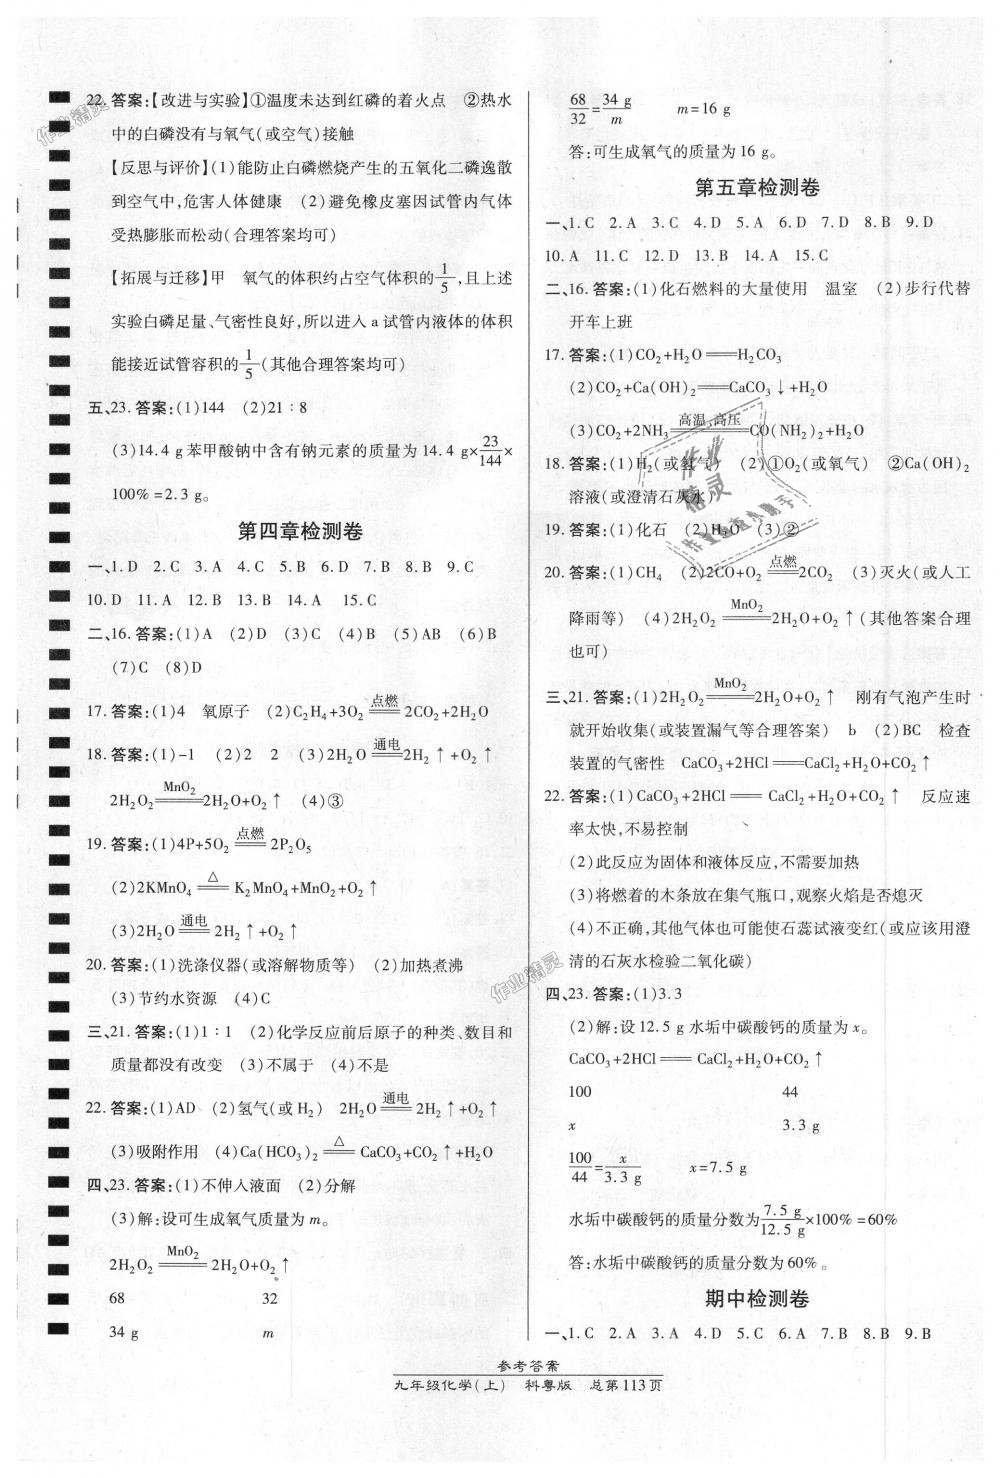 22. 答案:【改进与实验】①温度未达到红磷的着火点　②热水
中的白磷没有与氧气(或空气)接触
【反思与评价】(1)能防止白磷燃烧产生的五氧化二磷逸散
到空气中,危害人体健康　(2)避免橡皮塞因试管内气体
受热膨胀而松动(合理答案均可)
【拓展与迁移】甲　氧气的体积约占空气体积的1/5,且上述
实验白磷足量、气密性良好,所以进入 a 试管内液体的体积
能接近试管容积的1/5(其他合理答案均可)
五、23. 答案:(1)144　(2)21∶8
(3)14.4 g苯甲酸钠中含有钠元素的质量为 14.4 g×23/144×
100% =2.3 g。
第四章检测卷
一、1. D　2. C　3. A　4. C　5. B　6. D　7. B　8. B　9. C
10. D　11. A　12. B　13. B　14. A　15. C
二、16. 答案:(1)A　(2)D　(3)C　(4)B　(5)AB　(6)B
(7)C　(8)D
17. 答案:(1)4　氧原子　(2)C₂H₄+3O₂ ══点燃══ 2CO₂+2H₂O
18. 答案:(1)-1　(2)2　2　(3)2H₂O ══通电══ 2H₂↑+O₂↑
2H₂O₂ ══MnO₂══ 2H₂O+O₂↑　(4)③
19. 答案:(1)4P+5O₂ ══点燃══ 2P₂O₅
(2)2KMnO₄ ══△══ K₂MnO₄+MnO₂+O₂↑
(3)2H₂O ══通电══ 2H₂↑+O₂↑
20. 答案:(1)洗涤仪器(或溶解物质等)　(2)加热煮沸
(3)节约水资源　(4)C
三、21. 答案:(1)1∶1　(2)化学反应前后原子的种类、数目和
质量都没有改变　(3)不属于　(4)不是
22. 答案:(1)AD　(2)氢气(或H₂)　2H₂O ══通电══ 2H₂↑+O₂↑
(3)吸附作用　(4)Ca(HCO₃)₂ ══△══ CaCO₃+CO₂↑+H₂O
四、23. 答案:(1)不伸入液面　(2)分解
(3)解:设可生成氧气质量为 m。
2H₂O₂ ══MnO₂══ 2H₂O+O₂↑
68　　32
34 g　　m
68/32=34 g/m　　m=16 g
答:可生成氧气的质量为 16 g。
第五章检测卷
一、1. C　2. A　3. C　4. D　5. A　6. D　7. D　8. B　9. D
10. A　11. C　12. D　13. B　14. A　15. C
二、16. 答案:(1)化石燃料的大量使用　温室　(2)步行代替
开车上班
17. 答案:(1)CO₂+H₂O ══ H₂CO₃
(2)CO₂+Ca(OH)₂ ══ CaCO₃↓+H₂O
(3)CO₂+2NH₃ ══高温 高压══ CO(NH₂)₂+H₂O
18. 答案:(1)H₂(或氢气)　(2)①O₂(或氧气)　②Ca(OH)₂
溶液(或澄清石灰水)
19. 答案:(1)化石　(2)H₂O　(3)②
20. 答案:(1)CH₄　(2)2CO+O₂ ══点燃══ 2CO₂　(3)灭火(或人工
降雨等)　(4)2H₂O₂ ══MnO₂══ 2H₂O+O₂↑(其他答案合理
也可)
三、21. 答案:(1)2H₂O₂ ══MnO₂══ 2H₂O+O₂↑　刚有气泡产生时
就开始收集(或装置漏气等合理答案)　b　(2)BC　检查
装置的气密性　CaCO₃+2HCl ══ CaCl₂+H₂O+CO₂↑
22. 答案:(1)CaCO₃+2HCl ══ CaCl₂+H₂O+CO₂↑　反应速
率太快,不易控制
(2)此反应为固体和液体反应,不需要加热
(3)将燃着的木条放在集气瓶口,观察火焰是否熄灭
(4)不正确,其他气体也可能使石蕊试液变红(或应该用澄
清的石灰水检验二氧化碳)
四、23. 答案:(1)3.3
(2)解:设 12.5 g 水垢中碳酸钙的质量为 x。
CaCO₃+2HCl ══ CaCl₂+H₂O+CO₂↑
100　　44
x　　3.3 g
100/44=x/3.3 g　　x=7.5 g
水垢中碳酸钙的质量分数为7.5 g/12.5 g×100% =60%
答:水垢中碳酸钙的质量分数为60%。
期中检测卷
一、1. C　2. A　3. A　4. D　5. C　6. A　7. B　8. B　9. B
参考答案
九年级化学(上)　科粤版　总第113页
作业精灵
作业精灵
作业精灵